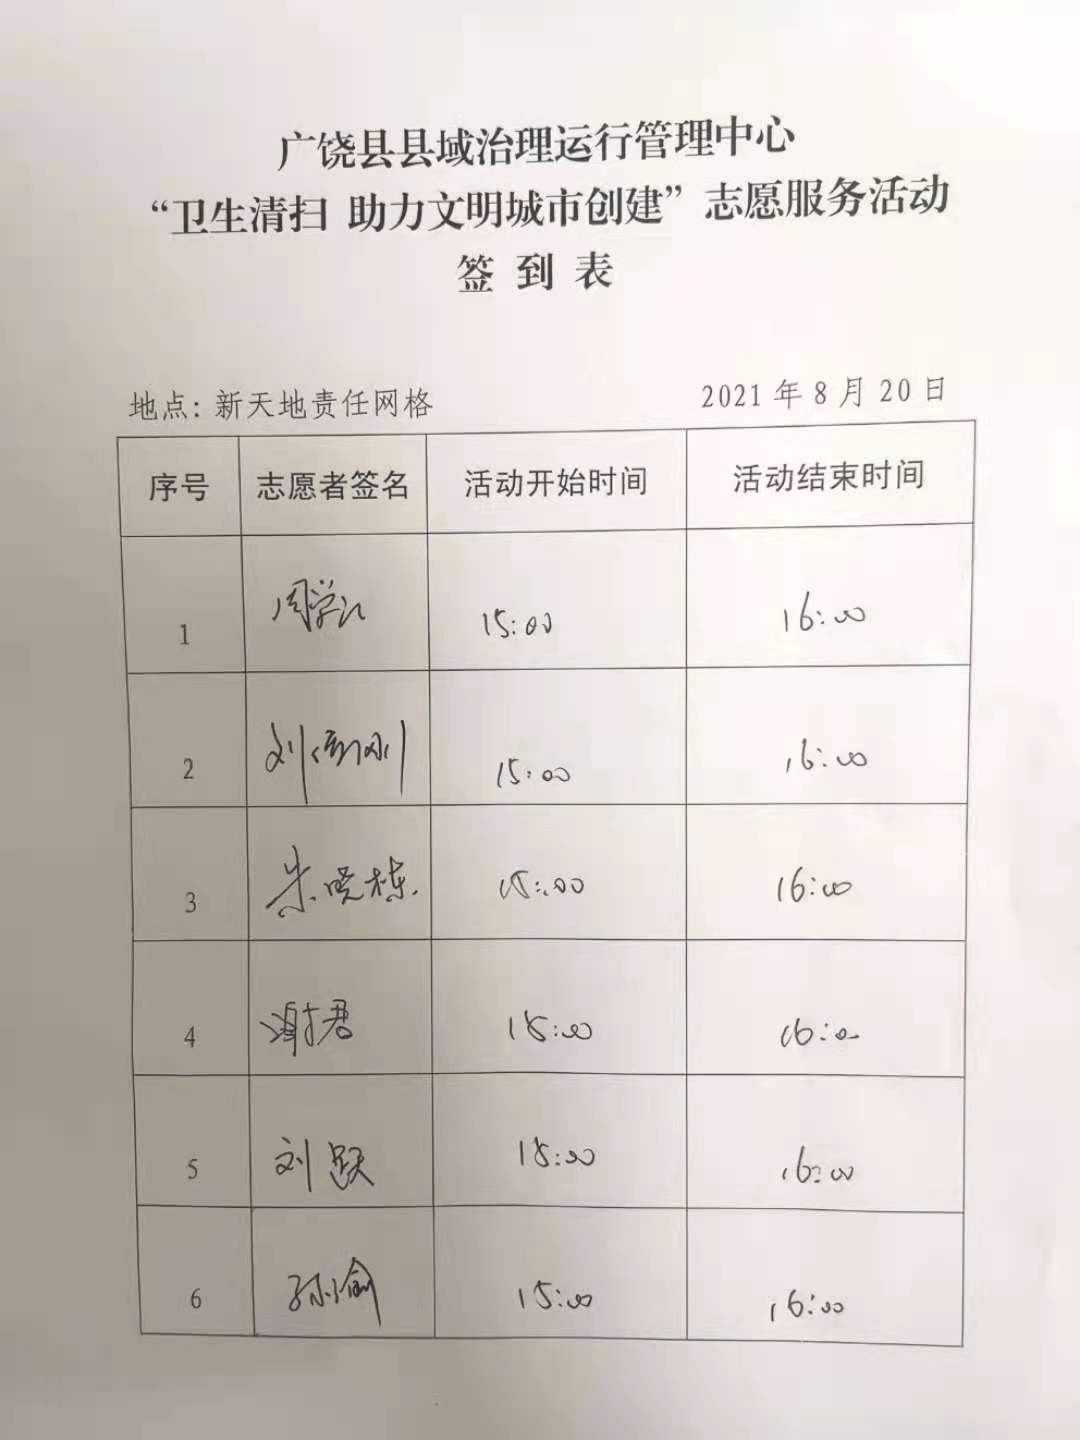 广饶县县域治理运行管理中心
“卫生清扫 助力文明城市创建”志愿服务活动
签 到 表
地点：新天地责任网格 2021 年 8 月 20 日
序号 志愿者签名 活动开始时间 活动结束时间
1 周学江 15:00 16:00
2 刘 刚 15:00 16:00
3 朱晓栋 15:00 16:00
4 谢君 15:00 16:00
5 刘跃 15:00 16:00
6 孙 15:00 16:00